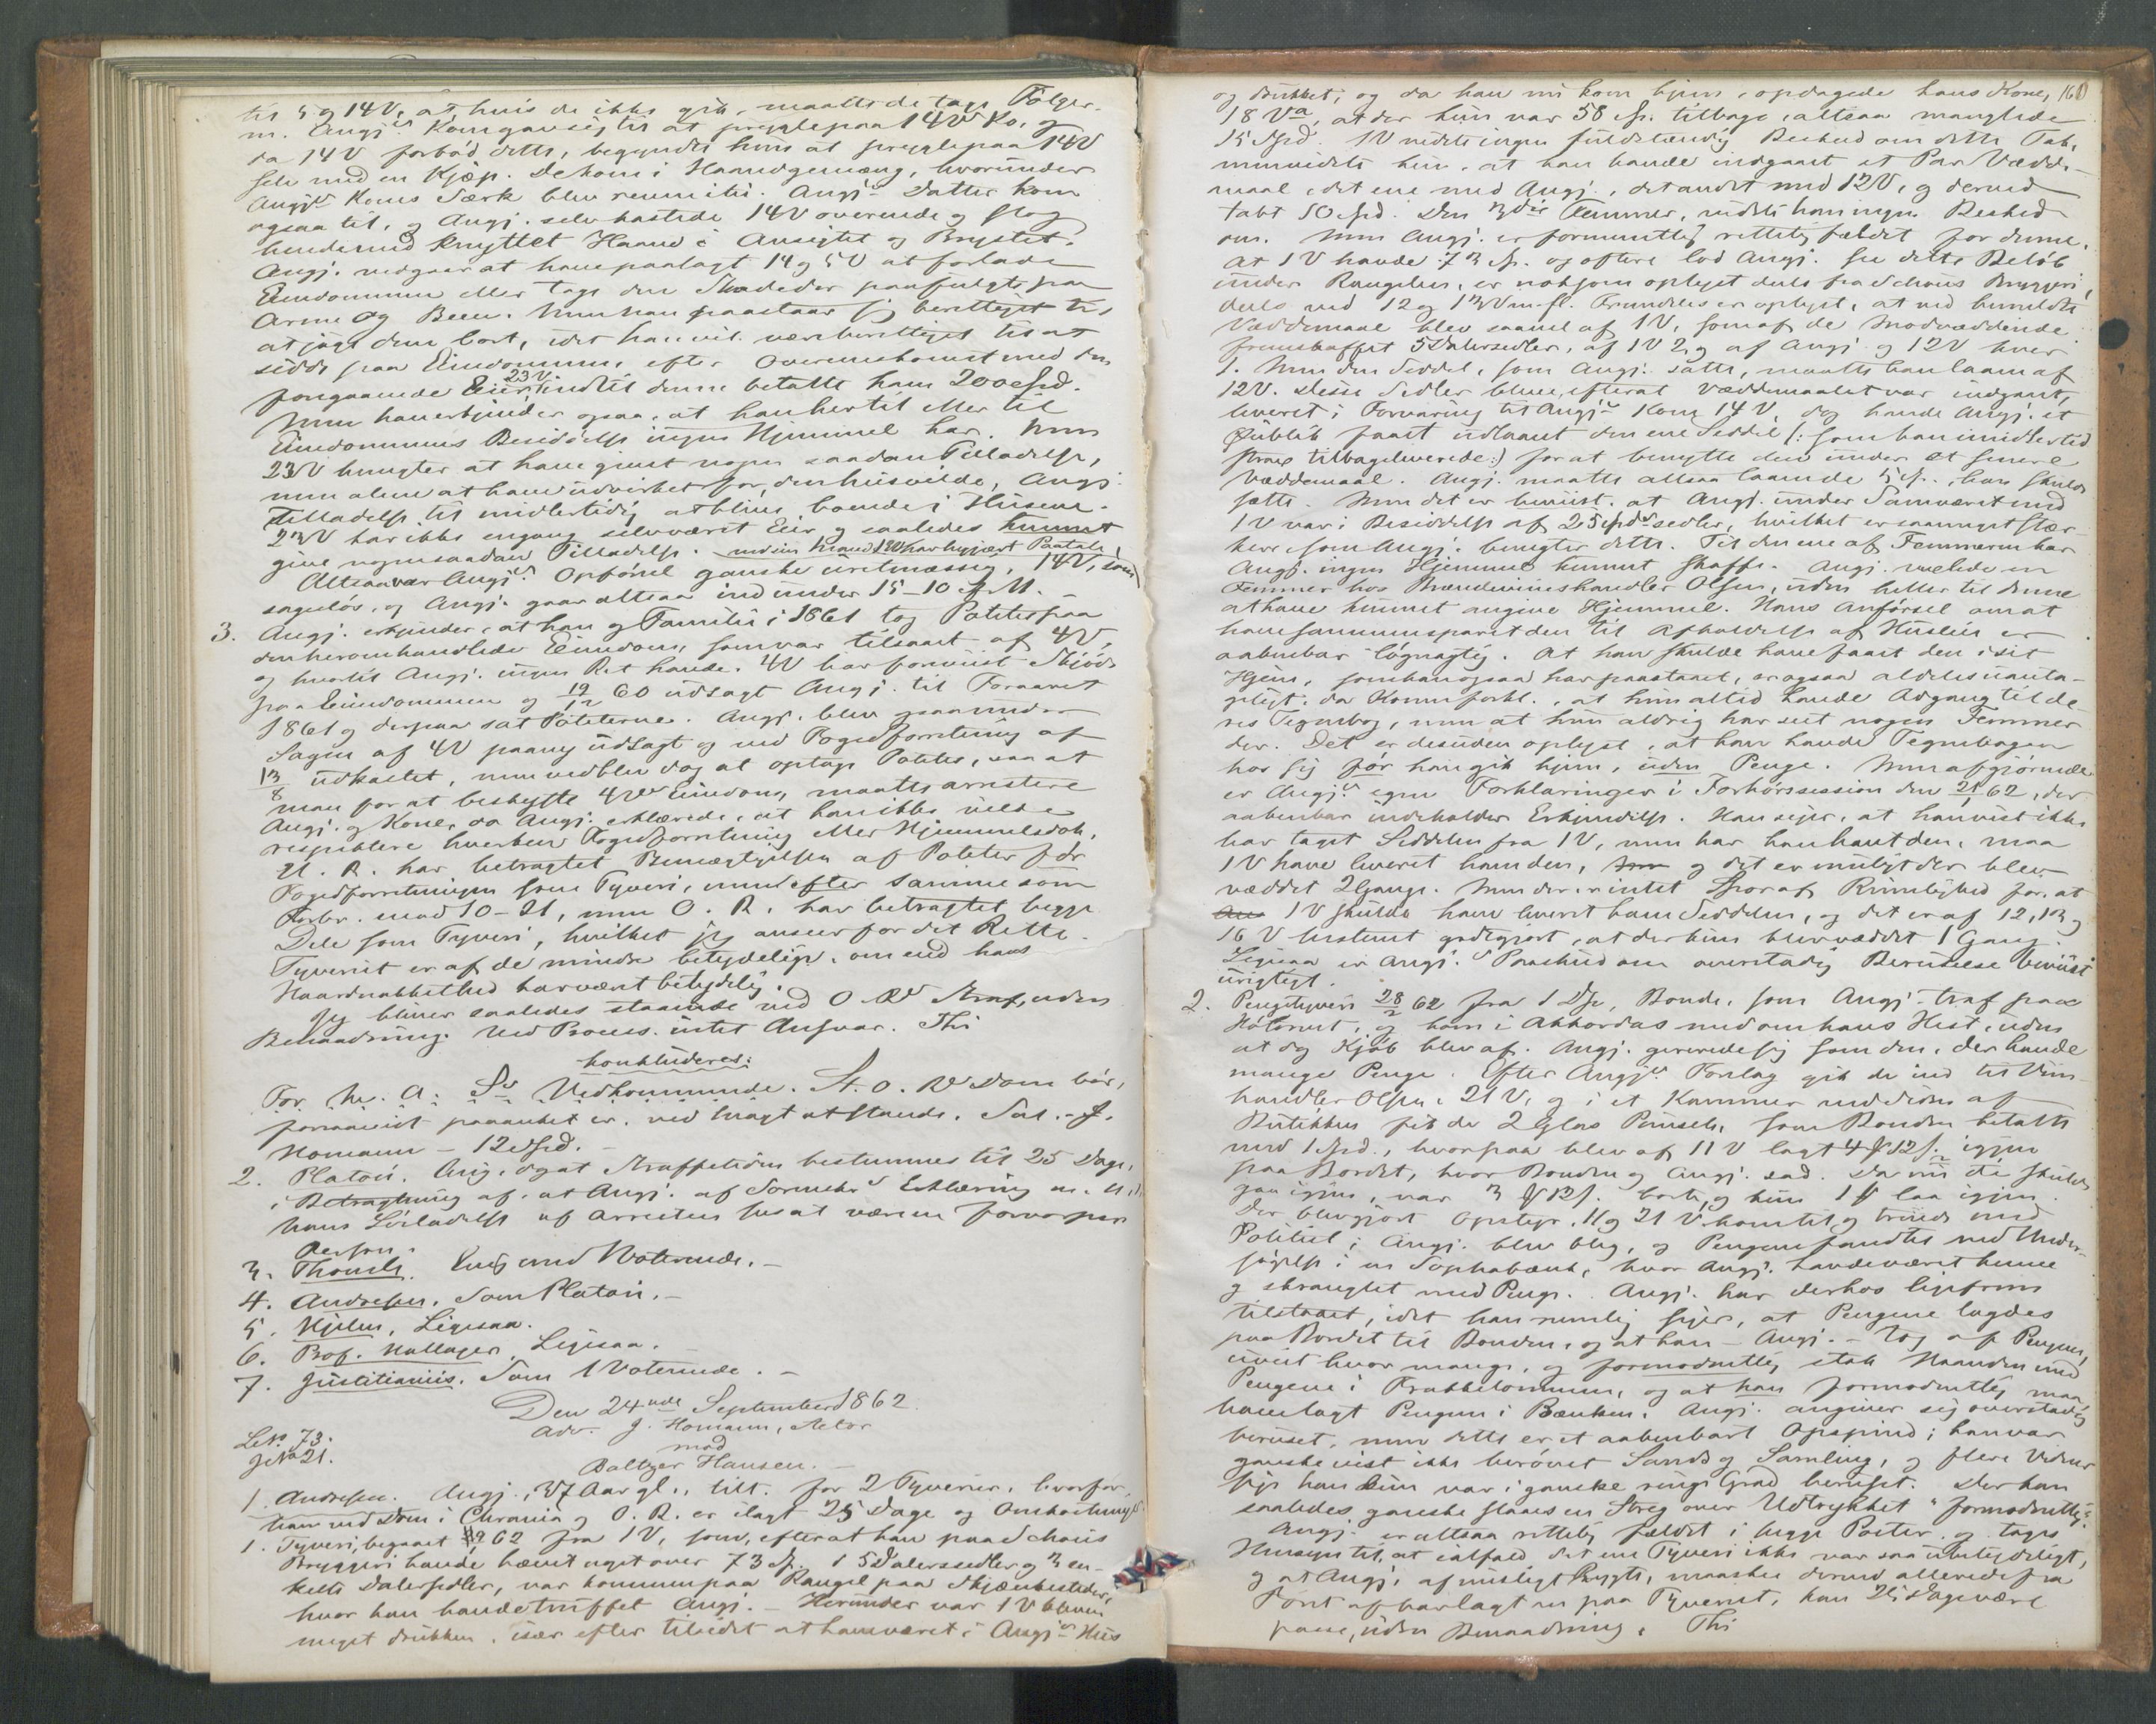 til 5 og 14 V, at hvis de ikke gik, maatte de tage Følger-
ne. Angj.s Kone gav sig til at prygle paa 14 Vs Ko, og
da 14 V forbød dette, begyndte hun at prygle paa 14 V
selv med en Kjæp. De kom i Haandgemæng, hvorunder
Angjs Kones Særk blev reven itu. Angj.s Datter kom
ogsaa til, og Angj. selv kastede 14 V overende og slog
hende med knyttet Haand i Ansigtet og Brystet.
Angj. vedgaar at have paalagt 14 og 5 V at forlade
Eiendommen eller tage den Skade der paafulgte paa
Arme og Been. Men han paastaar sig berettiget til
at jage dem bort, idet han vil være berettiget til at
sidde paa Eiendommen efter Overenskomst med den
forrgaaende Eier, 23 V. indtil denne betalte ham 200 Spd.
Men han erkjender ogsaa, at han hertil eller til
Eiendommens Besiddelse ingen Hjemmel har. Men
23 V benægter at have givet nogen saadan Tilladelse,
men alene at have udvirket for, den husvilde, Angj.
Tilladelse til midlertidig at blive boende i Husene.
23 V har ikke engang selv været Eier og saaledes kunnet
give nogen saadan Tilladelse.
Altsaa var Angj.s Opførsel ganske uretmæssig. 14 V, som med sin Mand 13 V har begjært Paatale,
sagesløs, og Angj. gaar altsaa ind under 15-10 S. M. -
3. Angj. erkjender, at han og Familie i 1861 tog Poteter paa
den heromhandlede Eiendom, som var tilsaaet af 4 V,
og hvortil Angj. ingen Ret havde. 4 V har foreviist Skjøde
paa Eiendommen og 19/12 60 udsagt Angj. til Foraaret
1861 og derpaa sat Poteterne. Angj. blev paa under
Sagen af 4 V paany udsagt og ved Fogedforretning af
13/8 udkastet, men vedblev dog at optage Poteter, saa at
man for at beskytte 4 Vs Eiendom, maatte arrestere
Angj. og Kone, da Angj. erklærede, at han ikke vilde
respektere hverken Fogedforretning eller Hjemmelsdok.
U. R. har betragtet Benægtelsen af Poteter før
Fogedforretningen som Tyveri, men efter samme som
Forbr. mod 10-21, men O. R. har betragtet begge
Dele som Tyveri, hvilket jeg anseer for det Rette.
Tyveriet er af de mindre betydelige, om end hans
Haardnakkethed har været betydelig.
Jeg bliver saaledes staaende ved O. Rs Straf, uden
Benaadning. Ved Proces. intet Ansvar. Thi
konkluderes:
For h. A. Ss Vedkommende. St. O. Rs Dom bør,
forsaavidt paaanket er, ved Magt at stande. Sal. - J.
Homann - 12 Spd. -
2. Platou. Enig, dog at Straffetiden bestemmes til 25 Dage,
i Betragtning af, at Angj. af Formdr.s Erklæring m. H. t.
hans Løsladelse af Arresten sees at være en forvorpen
Person.
3. Thomle. Enig med 1 Voterende. -
4. Andresen. Som Platou. -
5. Hjelm, Ligesaa.
6. Prof. Hallager, Ligesaa.
7. Justitiarius. Som 1 Voterende. -
Den 24nde September 1862.
L№ 73. Adv. J. Homann, Aktor
J№ 21. mod
Baltzer Hansen. -
1. Andresen. Angj., 37 Aar gl., tilt. for 2 Tyverier, hvorfor
han ved Dom i Chrania og O. R. er ilagt 25 Dage og Omkostninger.
1. Tyveri, begaaet 62 fra 1 V, som, efterat han paa Schous
Bryggeri havde hævet noget over 73 Sp. i 5 Dalerssedler og 3 en-
kelte Dalersedler, var kommen paa Rangel paa Skjænkesteder,
hvor han havde truffet Angj. - Herunder var 1 V bleven
meget drukken, især efter tilsidst at have været i Angj.s Huus
160
og drukket, og da han nu kom hjem, opdagede hans Kone,
18 Va, at der kun var 58 Sp. tilbage, altsaa manglede
15 Spd. 1 V vidste ingen fuldstændig Besked om dette Tab,
men vidste kun, at han havde indgaaet et Par Vædde-
maal, det ene med Angj., det andet med 12 V, og derved
tabt 10 Spd. Den 3die Femmer, vidste han ingen Besked
om. Men Angj. er formeentlig rettelig fældet for denne.
At 1 V havde 73 Sp. og oftere lod Angj. see dette Beløb
under Rangelen, er noksom oplyst dels fra Schous Bryggeri,
dels ved 12 og 13 V m. fl. Fremdeles er oplyst, at ved bemeldte
Væddemaal blev saavel af 1 V, som af de Modvæddende
fremskaffet 5 Dalersedler, af 1 V 2, og af Angj. og 12 V hver
1. Men den Seddel, som Angj. satte, maatte han laane af
12 V. Disse Sedler bleve, efterat Væddemaalet var indgaaet,
leveret i Forvaring til Angj.s Kone 14 V, dog havde Angj. et
Øieblik faaet udlaant den ene Seddel (: som han imidlertid
strax tilbageleverede :) for at benytte den under et senere
Væddemaal. Angj. maatte altsaa laane de 5 Sp., han skulde
sætte. Men det er beviist, at Angj. under Samværet med
1 V var i Besiddelse af 2 5 Spd.s sedler, hvilket er saameget stær-
kere som Angj. benægter dette. Til den ene af Femmerne har
Angj. ingen Hjemmel kunnet skaffe. Angj. vexlede en
Femmer hos Brændeviinshandler Olsen, uden heller til denne
at have kunnet angive Hjemmel. Hans Anførsel om at
have sammensparet den til Afholdelse af Husleie er
aabenbar løgnagtig. At han skulde have faaet den i sit
Hjem, som han ogsaa har paastaaet, er ogsaa aldeles uanta-
geligt, da Konen forkl., at hun altid havde Adgang til de-
res Tegnebog, men at hun aldrig har seet nogen Femmer
der. Det er desuden oplyst, at han havde Tegnebogen
hos sig før han gik hjem, uden Penge. Men afgjørende
er Angj.s egne Forklaringer i Forhørssession den 21/1 62, der
aabenbar indeholder Erkjendelse. Han siger, at han vist ikke
har taget Seddelen fra 1 V, men har han havt den, maa
1 V have leveret ham den, og det er muligt der blev
væddet 2 Gange. Men der er intet Spor af Rimelighed for, at
1 V skulde have leveret ham Seddelen, og det er af 12, 13 og
16 V bestemt godtgjort, at der kun blev væddet 1 Gang.
Ligesaa er Angj.s Paaskud om overstadig Beruselse beviist
urigtigt.
2. Pengetyveri 28/2 62 fra 1 Dp, Bonde, som Angj. traf paa
Høtorvet, og kom i Akkordas med om hans Hest, uden
at dog Kjøb blev af. Angj. gererede sig som den, der havde
mange Penge. Efter Angj.s Forslag gik de ind til Viin-
handler Olsen, 21 V, og i et Kammer ved Siden af
Butikken fik de 2 Glas Punsch, som Bonden betalte
med 1 Spd., hvorpaa blev af 11 V lagt 4 ₰ 12 s. igjen
paa Bordet, hvor Bonden og Angj. sad. Da nu de skulde
gaa igjen, var 3 ₰ 12 s. borte, og kun 1 ₰ laa igjen.
Der blev gjort Opstyr, 11 og 21 V kom til og truede med
Politiet; Angj. blev bleg, og Pengene fandtes ved Under-
søgelse i en Sophabænk, hvor Angj. havde været henne
og skranglet med Penge. Angj. har derhos ligefrem
tilstaaet, idet han nemlig siger, at Pengene lagdes
paa Bordet til Bonden, og at han - Angj. - tog af Pengene,
uvist hvor mange, og formodentlig stak Haanden med
Pengene i Frakkelommen, og at han formodentlig maa
have lagt Pengene i Bænken. Angj. angiver sig overstadig
beruset, men dette er et aabenbart Opspind; han var
ganske vist ikke berøvet Sands og Samling, og flere Vidner
sige han kun var i ganske ringe Grad beruset. Der kan
saaledes ganske slaaes en Streg over Udtrykket "formodentlig".
Angj. er altsaa rettelig fældet i begge Poster, og tages
Hensyn til, at ialfald det ene Tyveri ikke var saa ubetydeligt,
og at Angj., af misligt Rygte, maaskee derved allerede fra
Først af har lagt an paa Tyveriet, kan 25 Dage være
passe, uden Benaadning. Thi